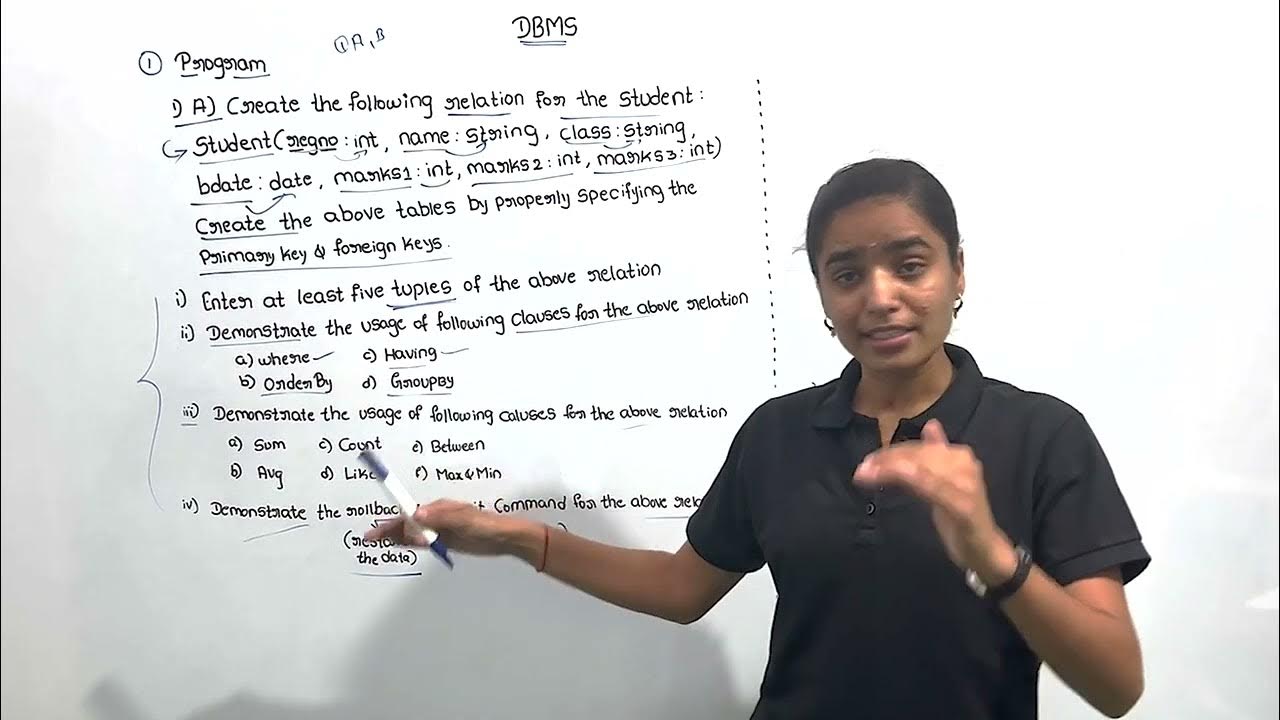 DBMS
① A, B
① Program
1) A) Create the following relation for the Student:
Student(regno:int, name:string, class:string,
bdate:date, marks1:int, marks2:int, marks3:int)
Create the above tables by properly specifying the
primary key & foreign keys.
i) Enter at least five tuples of the above relation
ii) Demonstrate the usage of following clauses for the above relation
a) where c) Having
b) OrderBy d) GroupBy
iii) Demonstrate the usage of following caluses for the above relation
a) Sum c) Count e) Between
b) Avg d) Like f) Max & Min
iv) Demonstrate the Command for the above
the data)